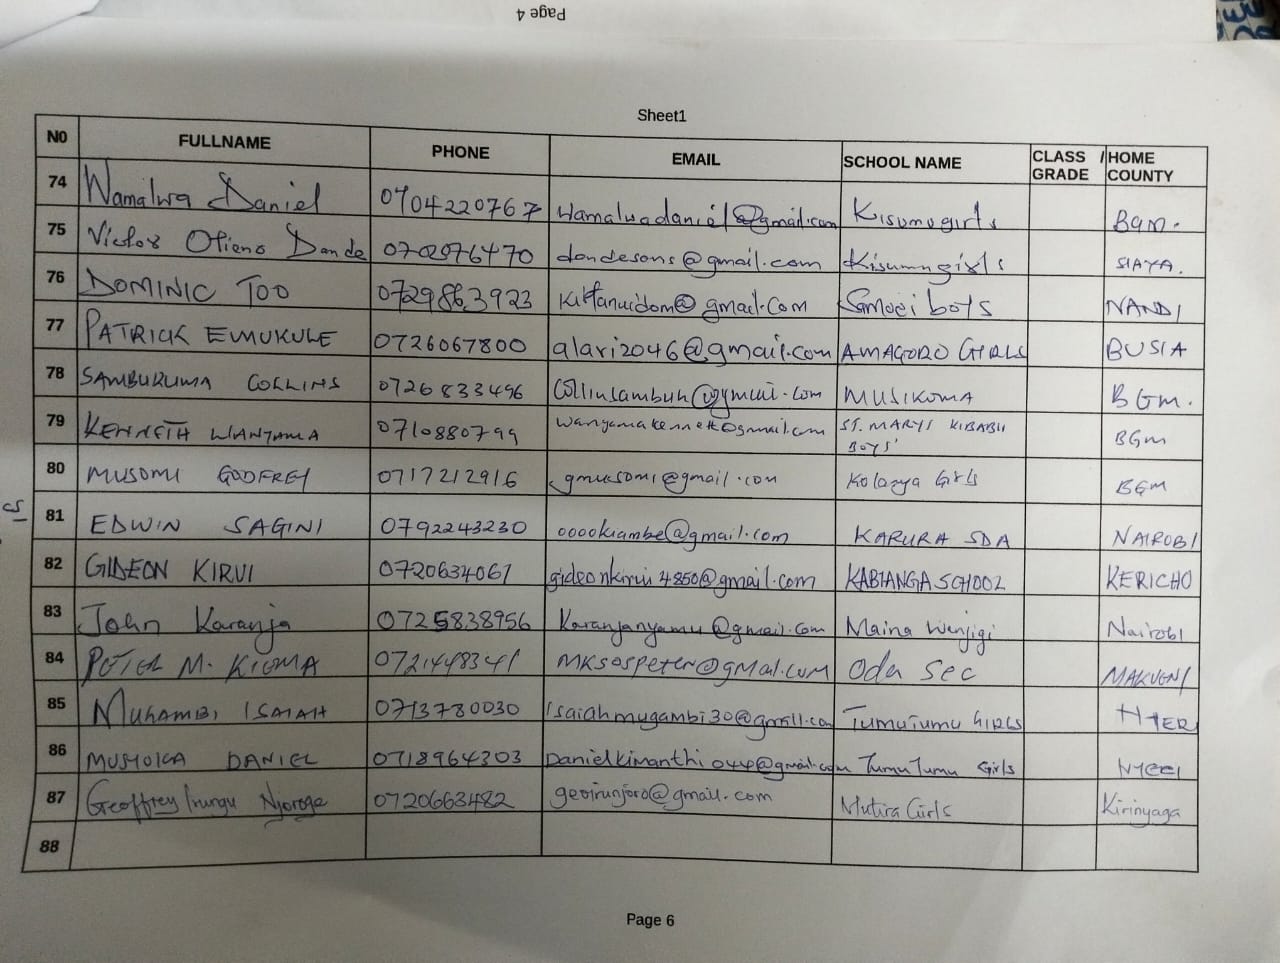 Page 4
Sheet1
N0 FULLNAME PHONE EMAIL SCHOOL NAME CLASS / GRADE HOME COUNTY
74 Wamalwa Daniel 0704220767 wamalwadaniel@gmail.com Kisumu girls BGM.
75 Victor Otieno Dande 0702976470 dandesons@gmail.com Kisumu girls SIAYA.
76 DOMINIC TOO 0729863923 @gmail.com Samoei boys NANDI
77 PATRICK EMUKULE 0726067800 alari2046@gmail.com AMAGORO GIRLS BUSIA
78 COLLINS 0726833496 MUSIKOMA BGM.
79 KENNETH WANYAMA 0710880799 wanyamakennett@gmail.com ST. MARYS KIBABII BOYS' BGM
80 MUSOMI GODFREY 0717212916 gmusomi@gmail.com Kolanya Girls BGM
81 EDWIN SAGINI 0792243230 ooookiambe@gmail.com KARURA SDA NAIROBI
82 GIDEON KIRUI 0720634061 gideonkirui4850@gmail.com KABIANGA SCHOOL KERICHO
83 John Karanja 0725838956 Karanjanyamu@gmail.com Maina Wanjigi Nairobi
84 PETER M. KIOMA 0721448341 MKSospeter@gmail.com Oda Sec MAKUENI
85 MUGAMBI ISAIAH 0713780030 Isaiahmugambi30@gmail.com TUMUTUMU GIRLS NYERI
86 MUSYOKA DANIEL 0718964303 Danielkimanthi044@gmail.com TumuTumu Girls NYERI
87 Geoffrey Irungu Njoroge 0720663482 geoirunjoro@gmail.com Mutira Girls Kirinyaga
88
Page 6